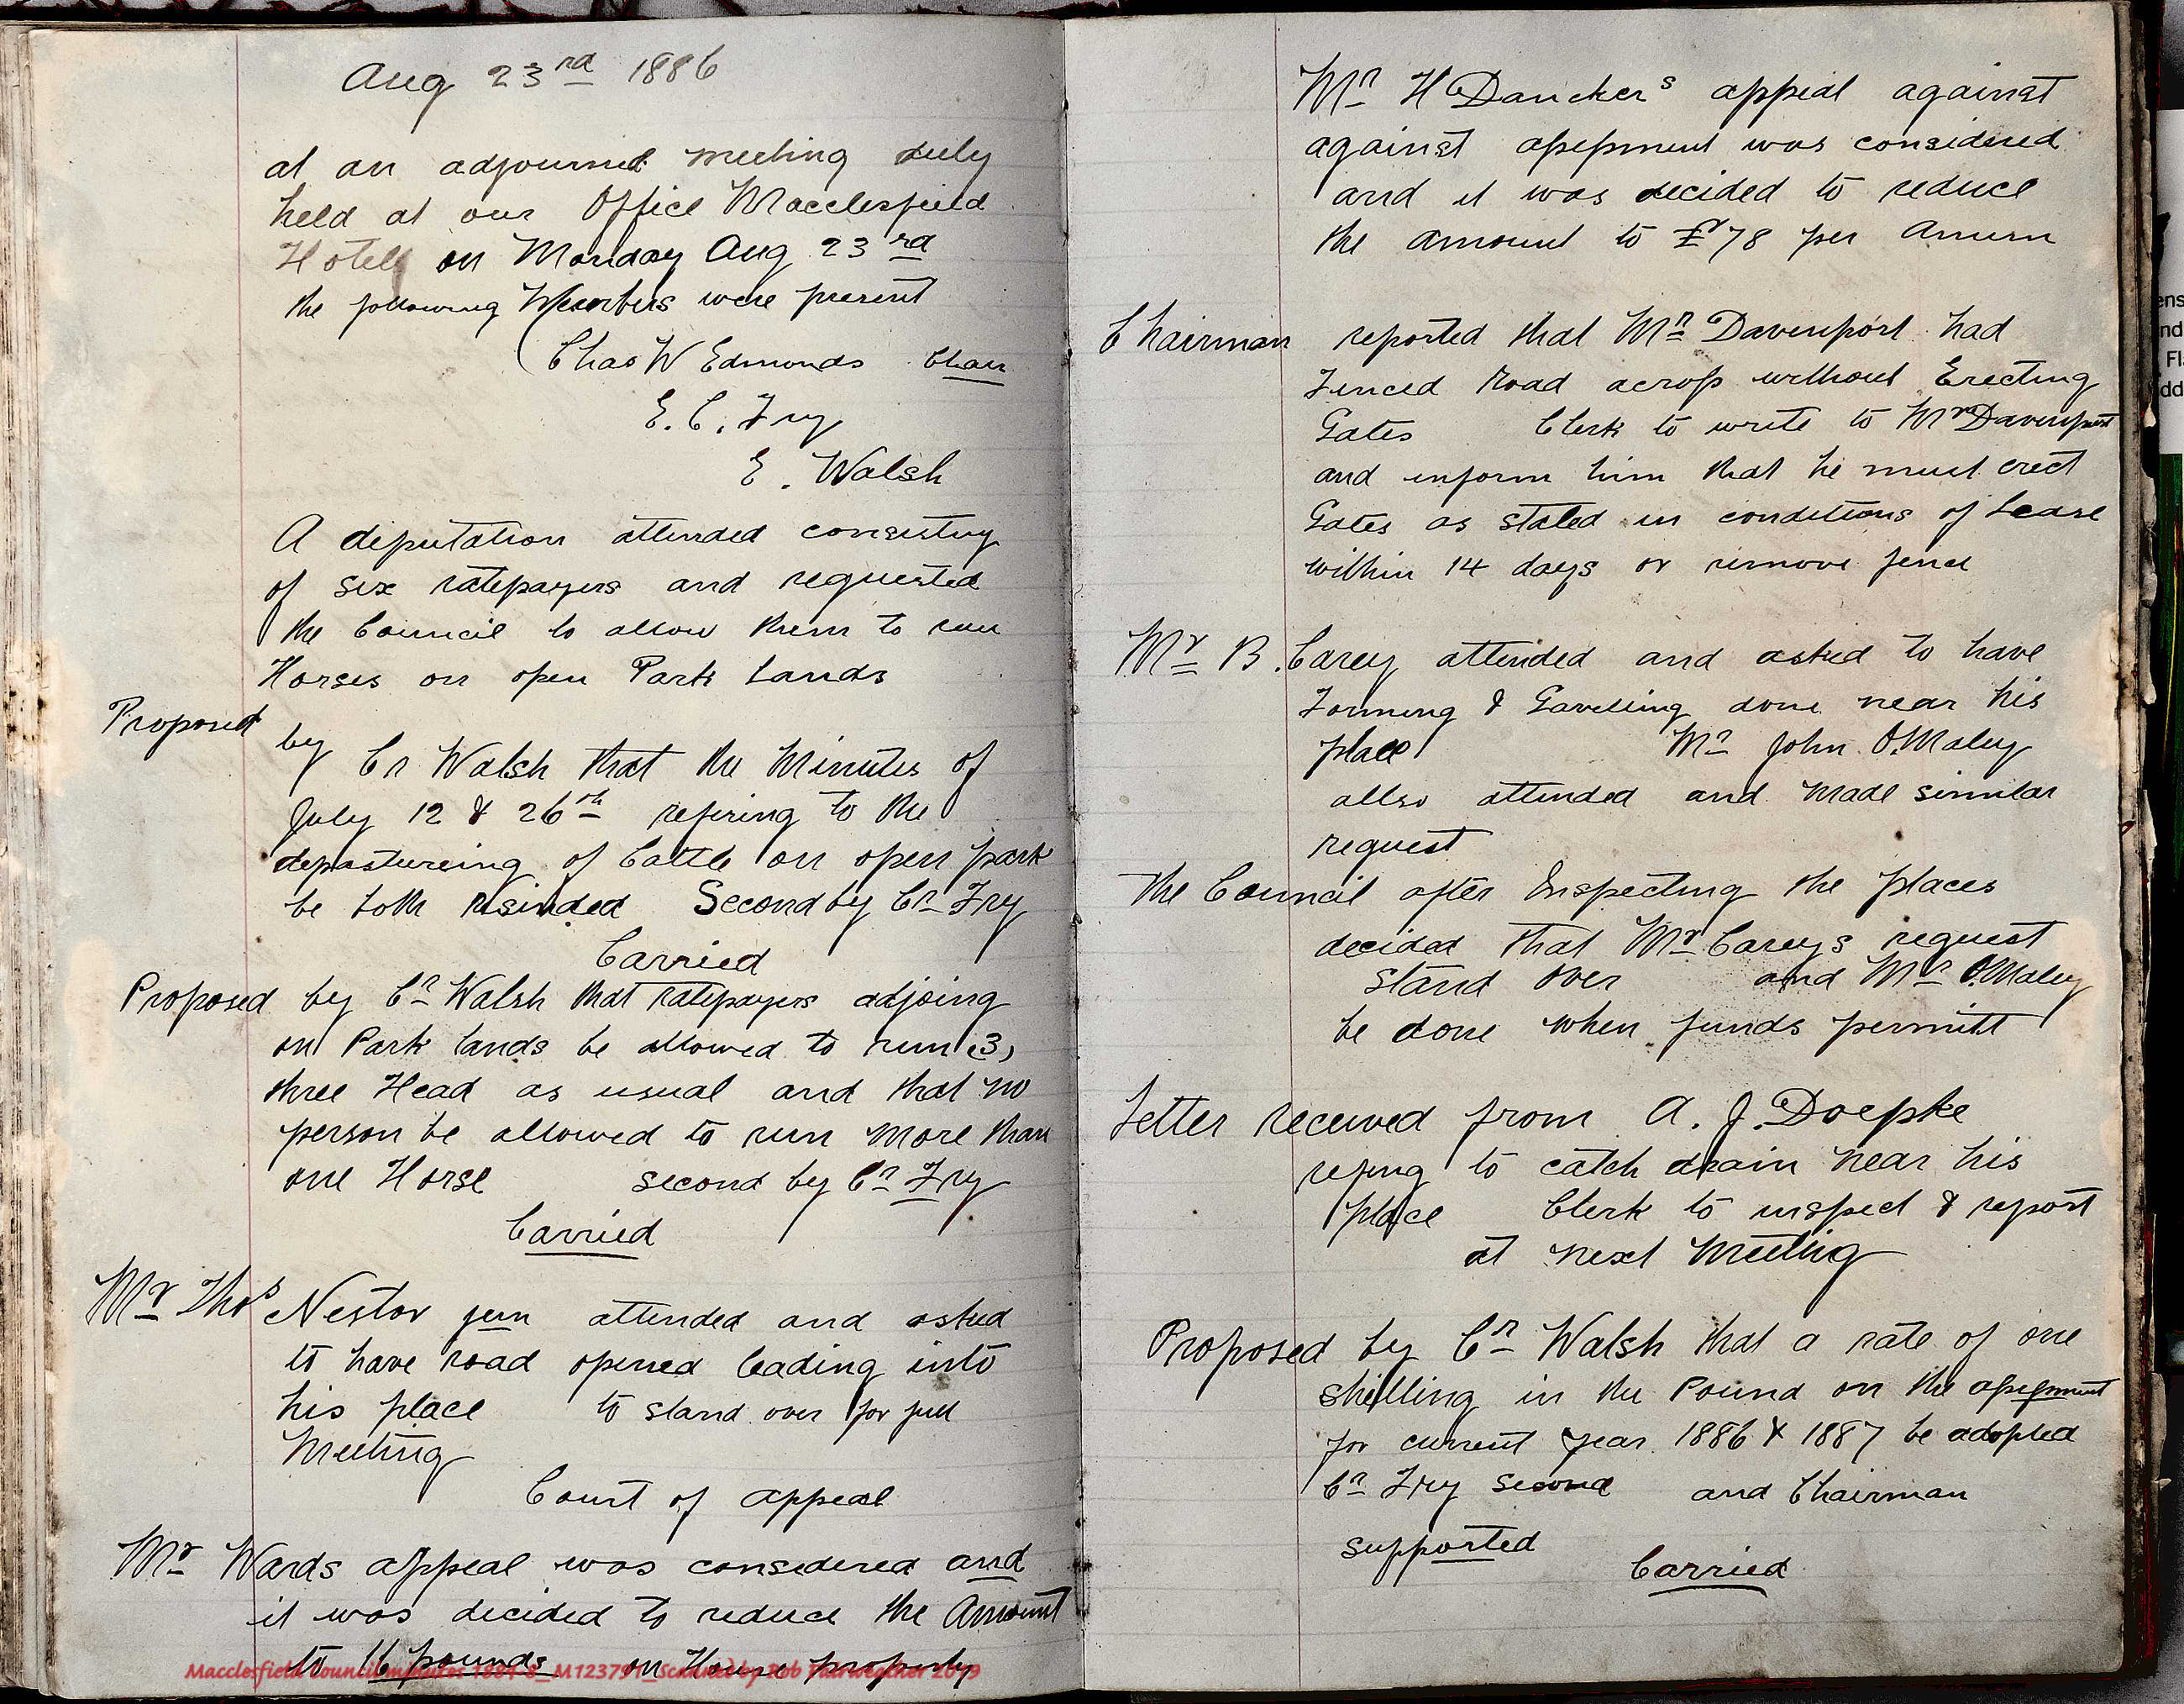 Aug 23rd 1886
at an adjourned meeting duly
held at our Office Macclesfield
Hotell on Monday Aug 23rd
the following Members were present
Chas W Edmonds Chair
E. C. Fry
E. Walsh
A deputation attended consisting
of six ratepayers and requested
the Council to allow them to run
Horses on open Park Lands
Proposed by Cr Walsh that the Minutes of
July 12 & 26th refering to the
depastureing of Cattle on open park
be both resinded Second by Cr Fry
Carried
Proposed by Cr Walsh that ratepayers adjoing
on Park lands be allowed to run (3)
three Head as usual and that no
person be allowed to run more than
one Horse second by Cr Fry
Carried
Mr Thos Nestor jun attended and asked
to have road opened leading into
his place to stand over for full
Meeting
Court of appeal
Mr Wards appeal was considered and
it was decided to reduce the Amount
to 16 pounds on House property
Macclesfield Council minutes 1884-8_M123791_Scanned by Rob Fairweather 2019
Mr H Danckers appeal against
against assessment was considered
and it was decided to reduce
the amount to £78 per Annum
Chairman reported that Mr Davenport had
Fenced Road across without Erecting
Gates Clerk to write to Mr Davenport
and inform him that he must erect
Gates as stated in conditions of Lease
within 14 days or remove fence
Mr B. Carey attended and asked to have
Forming & Gravelling done near his
place Mr John O.Maley
allso attended and made similar
request
the Council after Inspecting the places
decided that Mr Careys request
stand over and Mr O.Maley
be done when funds permitt
Letter received from A. J. Doepke
refing to catch drain near his
place Clerk to inspect & report
at next Meeting
Proposed by Cr Walsh that a rate of one
shilling in the Pound on the assessment
for current year 1886 & 1887 be adopted
Cr Fry Second and Chairman
supported
Carried
ens
nd
Fl
dd